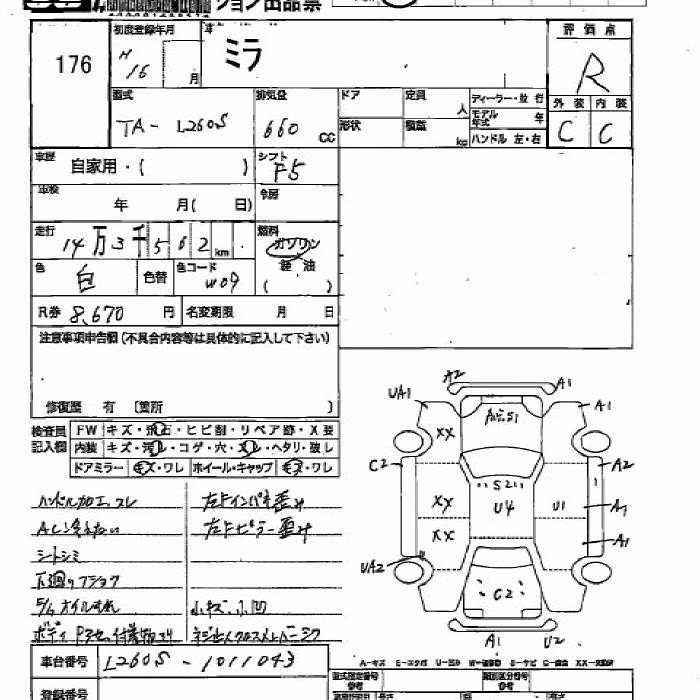 ション出品票
176
初度登録年月
H 16 月
車
ミラ
評価点
R
型式
TA- L260S
排気量
660 CC
ドア
定員 人
ディーラー・並行
モデル年式 年
形状
積載 kg
ハンドル 左・右
外装 内装
C C
車歴 自家用・( )
シフト F5
車検 年 月( 日)
冷房
走行 14万3千562km
燃料 ガソリン
軽油
( )
色 白 色替 色コード W09
R券 8,670 円 名変期限 月 日
注意事項申告欄(不具合内容等は具体的に記入して下さい)
修復歴 有 〔箇所 〕
検査員記入欄
FW キズ・飛石・ヒビ割・リペア跡・X要
内装 キズ・汚レ・コゲ・穴・スレ・ヘタリ・破レ
ドアミラー キズ・ワレ ホイール・キャップ キズ・ワレ
ハンドル加工、スレ
左Fインパネ歪み
ACシ冷えない
左Fピラー歪み
シートシミ
下廻りフショク
オイルもれ
小キズ、小凹
ボディ
車台番号 L260S - 1011043
登録番号
A2
UA1
A1
A1
XX
C2
S21
A2
XX
U4
U1
A1
XX
A1
UA2
C2
A1
U2
A-キズ E-エクボ U-凹み
型式指定番号
類別区分番号
参考
参考